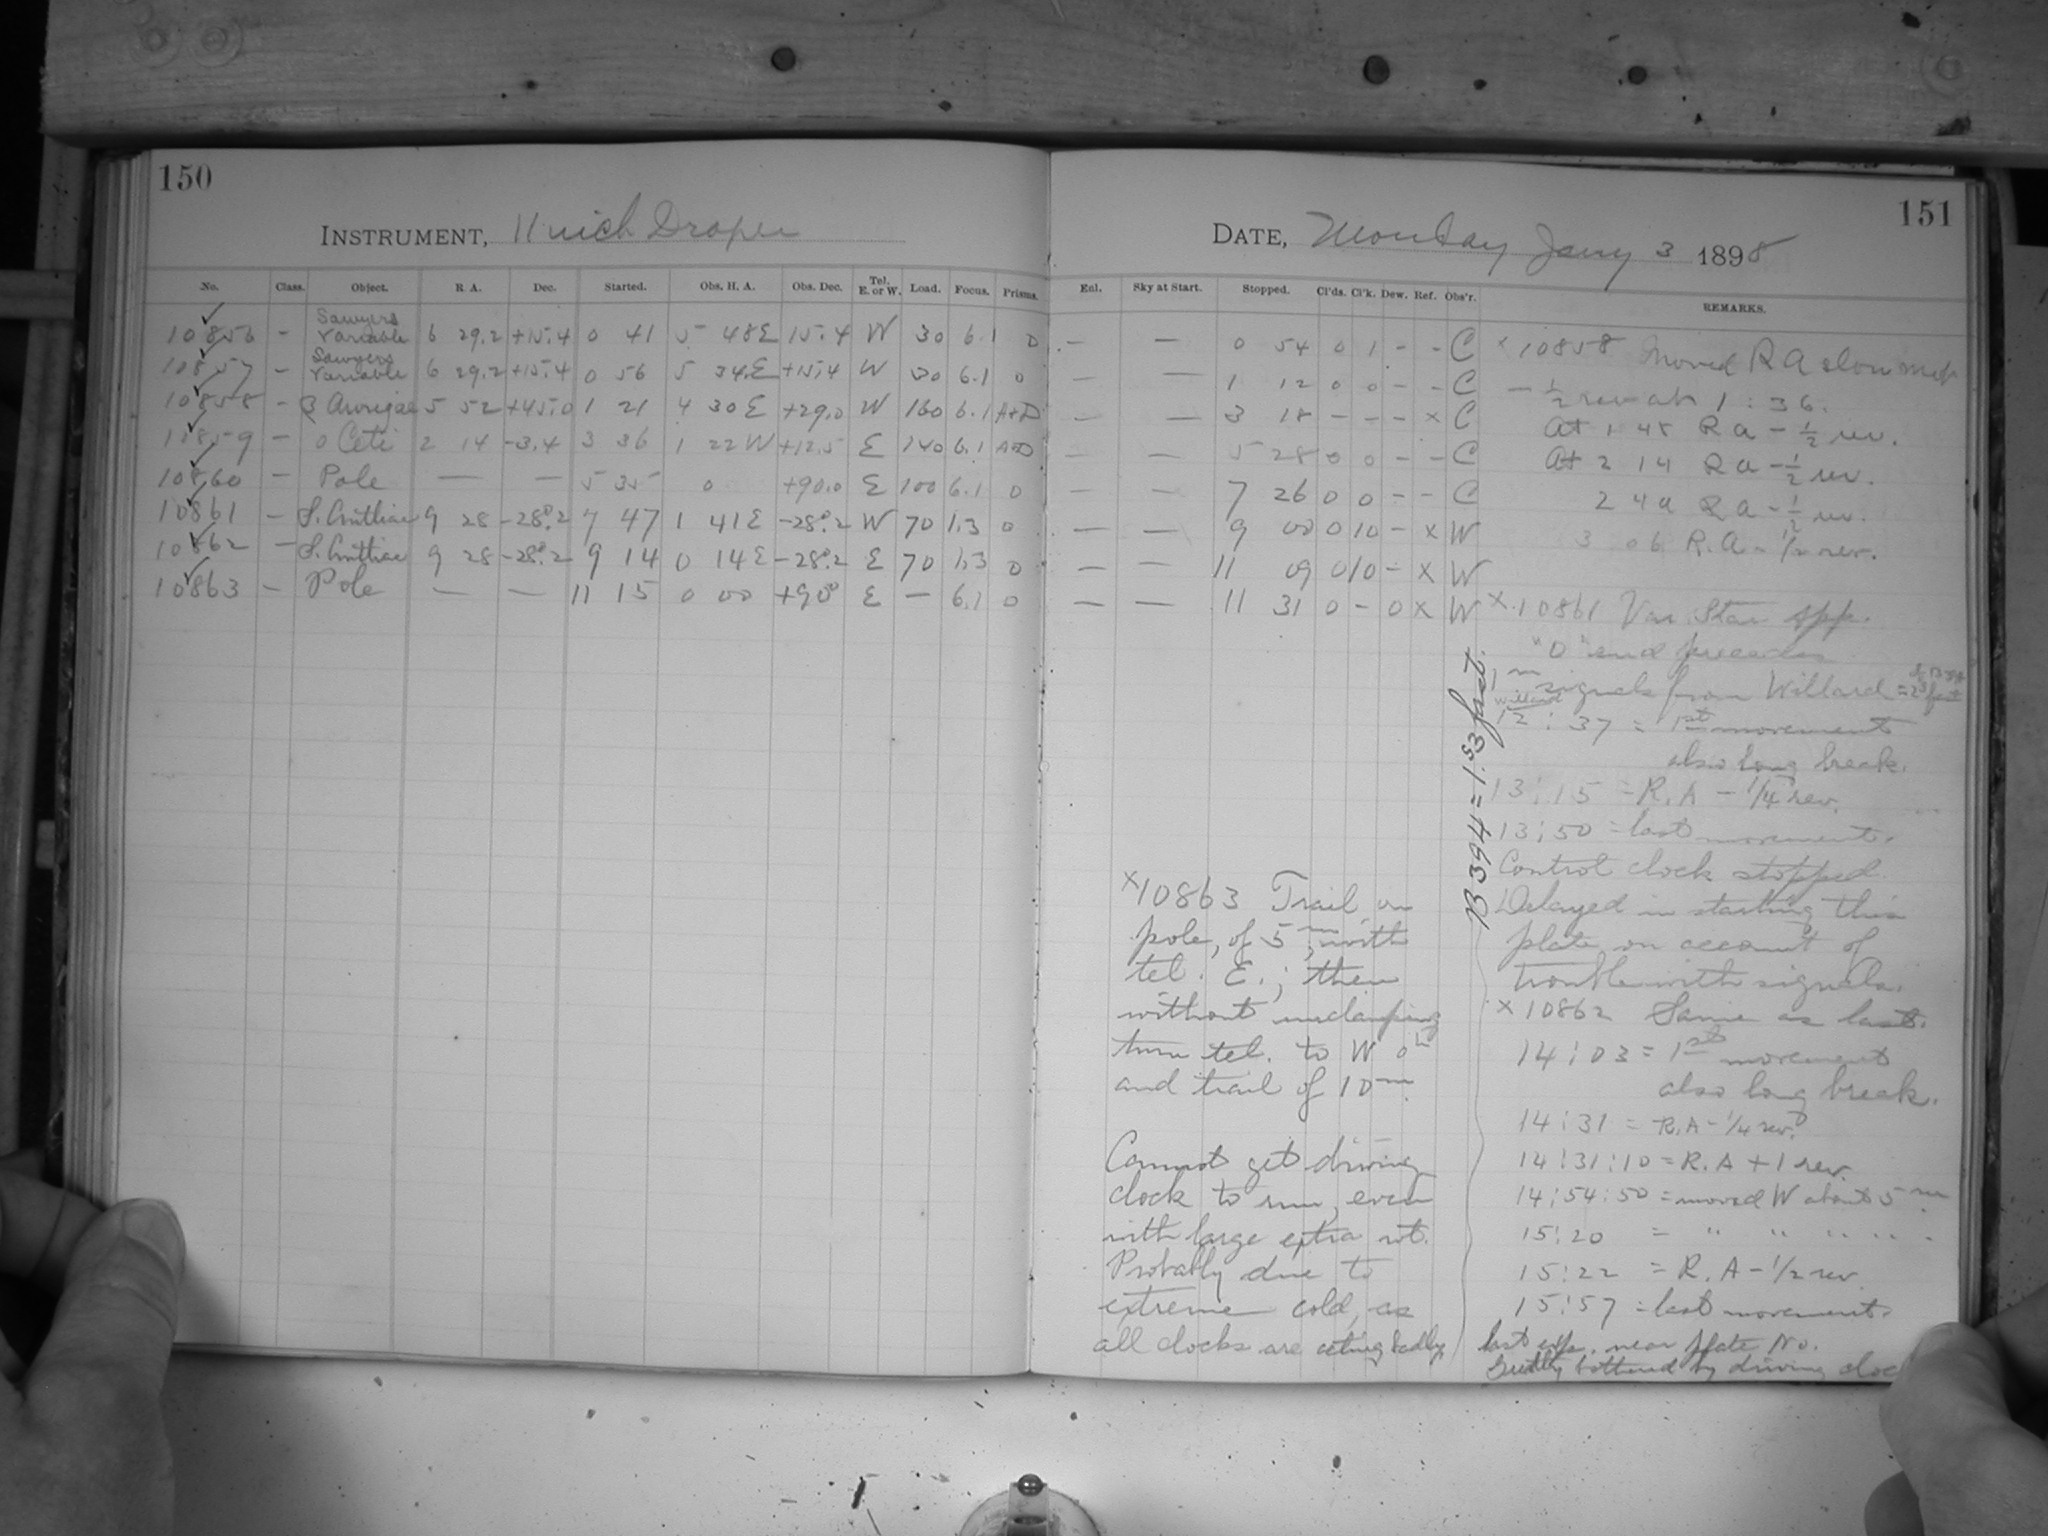 150
INSTRUMENT, 11 inch Draper
No. Class. Object. R. A. Dec. Started. Obs. H. A. Obs. Dec. Tel. E. or W. Load. Focus. Prisms.
10856 - Sawyers Variable 6 29.2 +15.4 0 41 5 48E 15.4 W 30 6.1 0
10857 - Sawyers Variable 6 29.2 +15.4 0 56 5 34E +15.4 W 30 6.1 0
10858 - β Aurigae 5 52 +45.0 1 21 4 30E +29.0 W 160 6.1 A+D
10859 - o Ceti 2 14 -3.4 3 36 1 22W +12.5 E 140 6.1 A+D
10860 - Pole — — 5 35 0 +90.0 E 100 6.1 0
10861 - S. Antliae 9 28 -28°.2 7 47 1 41E -28°.2 W 70 1.3 0
10862 - S. Antliae 9 28 -28°.2 9 14 0 14E -28°.2 E 70 1.3 0
10863 - Pole — — 11 15 0 00 +90° E — 6.1 0
151
DATE, Monday Jany 3 1898
Enl. Sky at Start. Stopped. Cl'ds. Cl'k. Dew. Ref. Obs'r. REMARKS.
— — 0 54 0 1 - - C
— — 1 12 0 0 - - C
— — 3 18 - - - x C
— — 5 28 0 0 - - C
— — 7 26 0 0 - - C
— — 9 00 0 10 - x W
— — 11 09 0 10 - x W
— — 11 31 0 - 0 x W
x 10858 Moved R A slow
- 1/2 rev at 1:36.
At 1 48 R a - 1/2 rev.
At 2 14 R a - 1/2 rev.
2 49 R a - 1/2 rev.
3 06 R.A - 1/2 rev.
x 10861 Var. Star opp.
"O" end
1m signals from Willard = 2s fast
Willard
12:37 = 1st movement
also long break.
13:15 = R.A - 1/4 rev.
13:50 = last movement.
Control clock stopped.
Delayed in starting this
plate on account of
trouble with signals.
x 10862 Same as last.
14:03 = 1st movement
also long break.
14:31 = R.A - 1/4 rev.
14:31:10 = R.A + 1 rev.
14:54:50 = moved W about 5m.
15:20 = " " " " "
15:22 = R.A - 1/2 rev.
15:57 = last movement.
last exp. near plate No.
Greatly bothered by driving clock
B 394 = 1.s3 fast.
x 10863 Trail on
pole, of 5m, with
tel. E.; then
without unclamping
turn tel. to W 0h
and trail of 10m.
Cannot get driving
clock to run, even
with large extra wt.
Probably due to
extreme cold, as
all clocks are acting badly